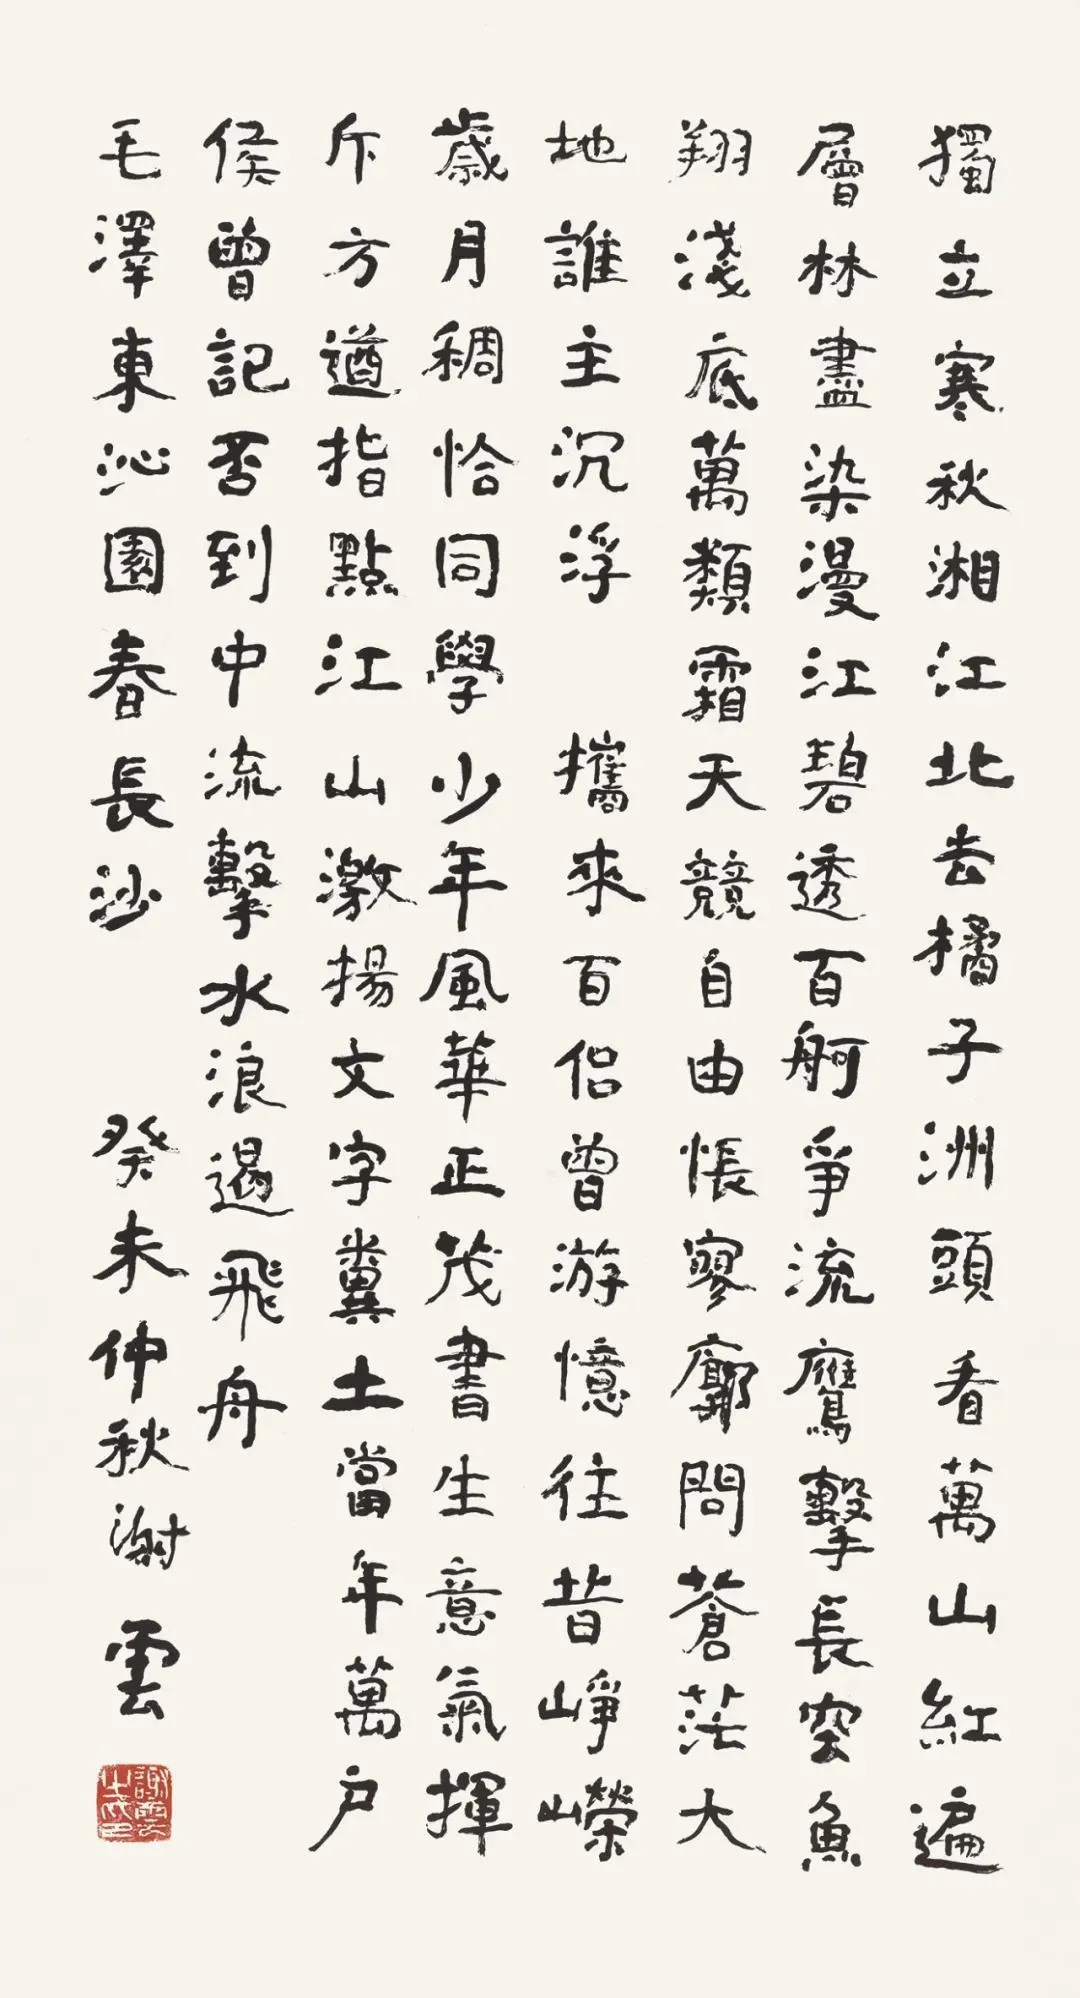 獨立寒秋湘江北去橘子洲頭看萬山紅遍
層林盡染漫江碧透百舸爭流鷹擊長空魚
翔淺底萬類霜天競自由悵寥廓問蒼茫大
地誰主沉浮 攜來百侣曾游憶往昔崢嶸
歲月稠恰同學少年風華正茂書生意氣揮
斥方遒指點江山激揚文字糞土當年萬户
侯曾記否到中流擊水浪遏飛舟
毛澤東沁園春長沙 癸未仲秋謝雲